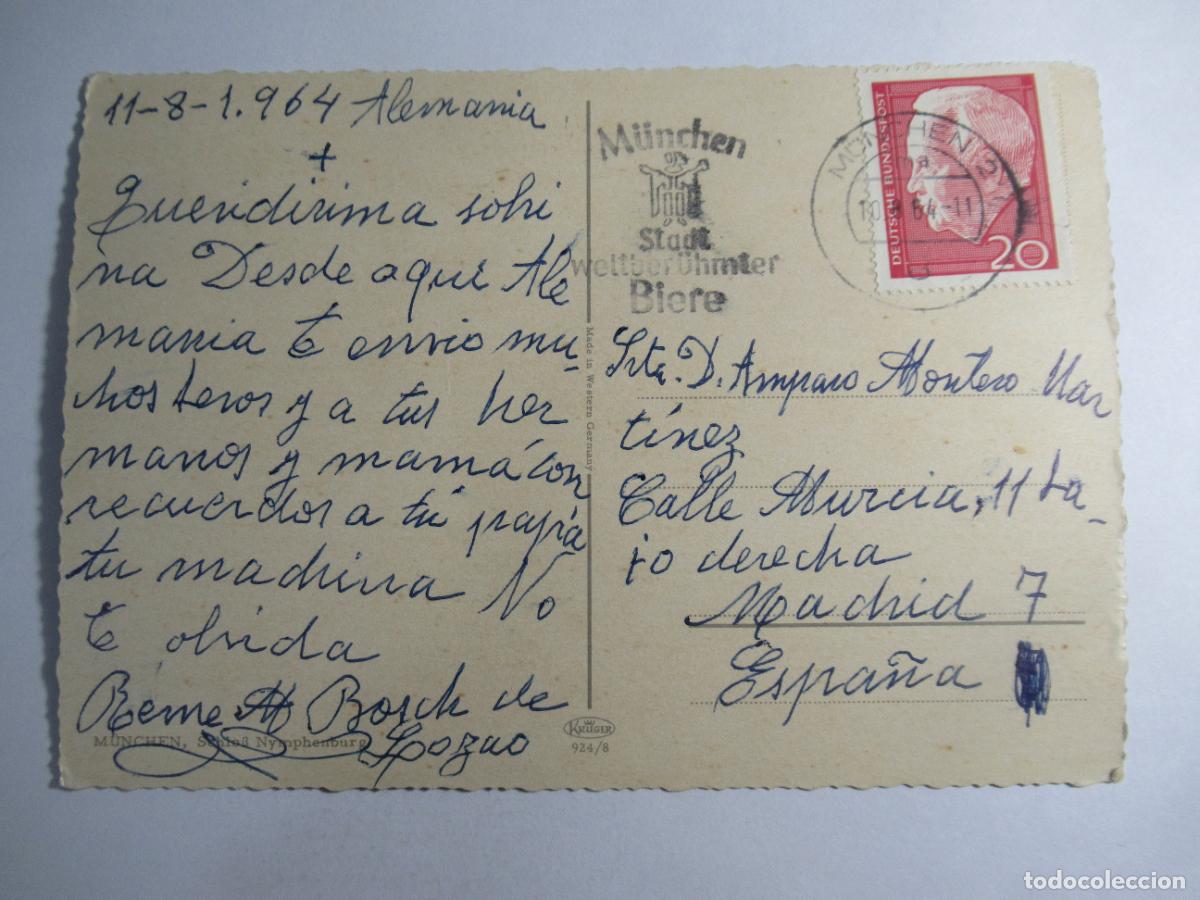 11-8-1.964 Alemania
+
Queridisima sobri
na Desde aqui Ale
mania te envio mu-
chos besos y a tus her
manos y mamá con
recuerdos a tú papá
tu madrina No
te olvida
Reme M Bosch de
Lozano
MÜNCHEN, Schloß Nymphenburg
KRÜGER
924/8
Made in Western Germany
München
Stadt
weltberühmter
Biere
MÜNCHEN
64-11
DEUTSCHE BUNDESPOST
20
Srta. D. Amparo Montero Mar
tínez
Calle Murcia, 11 ba-
jo derecha
Madrid 7
España
todocoleccion